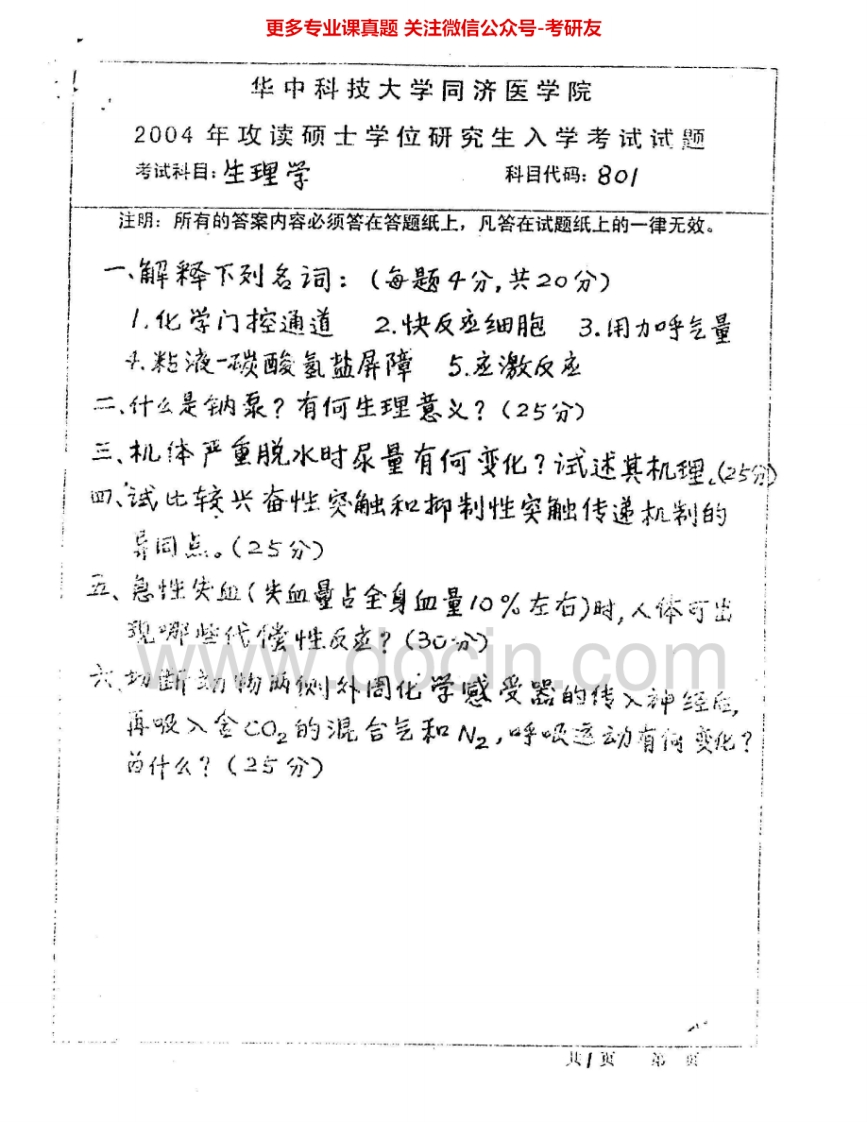 更多专业课真题 关注微信公众号-考研友
华中科技大学同济医学院
2004年攻读硕士学位研究生入学考试试题
考试科目：生理学 科目代码：801
注明：所有的答案内容必须答在答题纸上，凡答在试题纸上的一律无效。
一、解释下列名词：（每题4分，共20分）
1.化学门控通道 2.快反应细胞 3.用力呼气量
4.粘液-碳酸氢盐屏障 5.应激反应
二、什么是钠泵？有何生理意义？（25分）
三、机体严重脱水时尿量有何变化？试述其机理。（25分）
四、试比较兴奋性突触和抑制性突触传递机制的
异同点。（25分）
五、急性失血（失血量占全身血量10%左右）时，人体可出
现哪些代偿性反应？（30分）
www.docin.com
六、切断动物两侧外周化学感受器的传入神经后，
再吸入含CO₂的混合气和N₂，呼吸运动有何变化？
为什么？（25分）
共1页 第 页